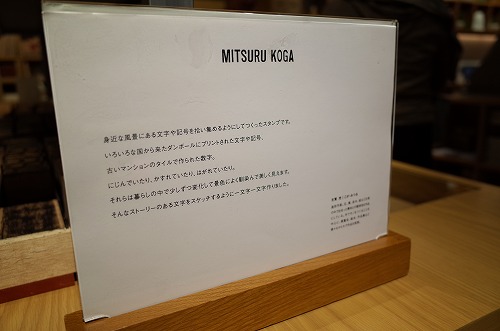 MITSURU KOGA
身近な風景にある文字や記号を拾い集めるようにしてつくったスタンプです。
いろいろな国から来たダンボールにプリントされた文字や記号、
古いマンションのタイルで作られた数字。
にじんでいたり、かすれていたり、はがれていたり。
それらは暮らしの中で少しずつ変化して景色によく馴染んで美しく見えます。
そんなストーリーのある文字をスケッチするように一文字一文字作りました。